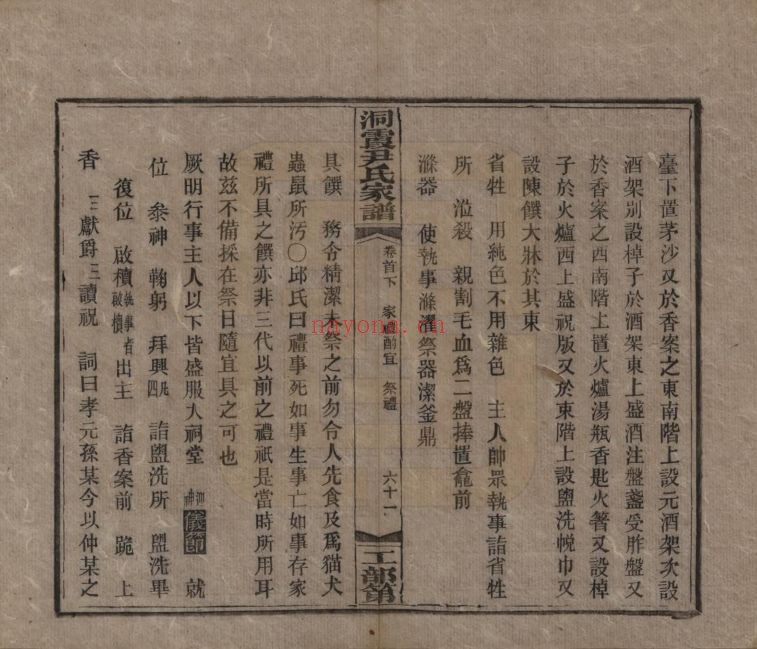 臺下置茅沙又於香案之東南階上設元酒架次設
酒架別設棹子於酒架東上盛酒注盤盞受胙盤又
於香案之西南階上置火爐湯瓶香匙火箸又設棹
子於火爐西上盛祝版又於東階上設盥洗帨巾又
設陳饌大牀於其東
省牲 用純色不用雜色 主人帥眾執事詣省牲
所 涖殺 親割毛血為二盤捧置龕前
滌器 使執事滌濯祭器潔釜鼎
洞霞尹氏家譜 卷首下 家禮酌宜 祭禮 六十一 工部第
具饌 務令精潔未祭之前勿令人先食及為猫犬
蟲鼠所汚〇邱氏曰禮事死如事生事亡如事存家
禮所具之饌亦非三代以前之禮祇是當時所用耳
故茲不備採在祭日隨宜具之可也
厥明行事主人以下皆盛服入祠堂 儀節 就
位 叅神 鞠躬 拜興凡四 詣盥洗所 盥洗畢
復位 啟櫝執事者啟櫝 出主 詣香案前 跪 上
香三 獻爵三 讀祝 詞曰孝元孫某今以仲某之
nayona.cn